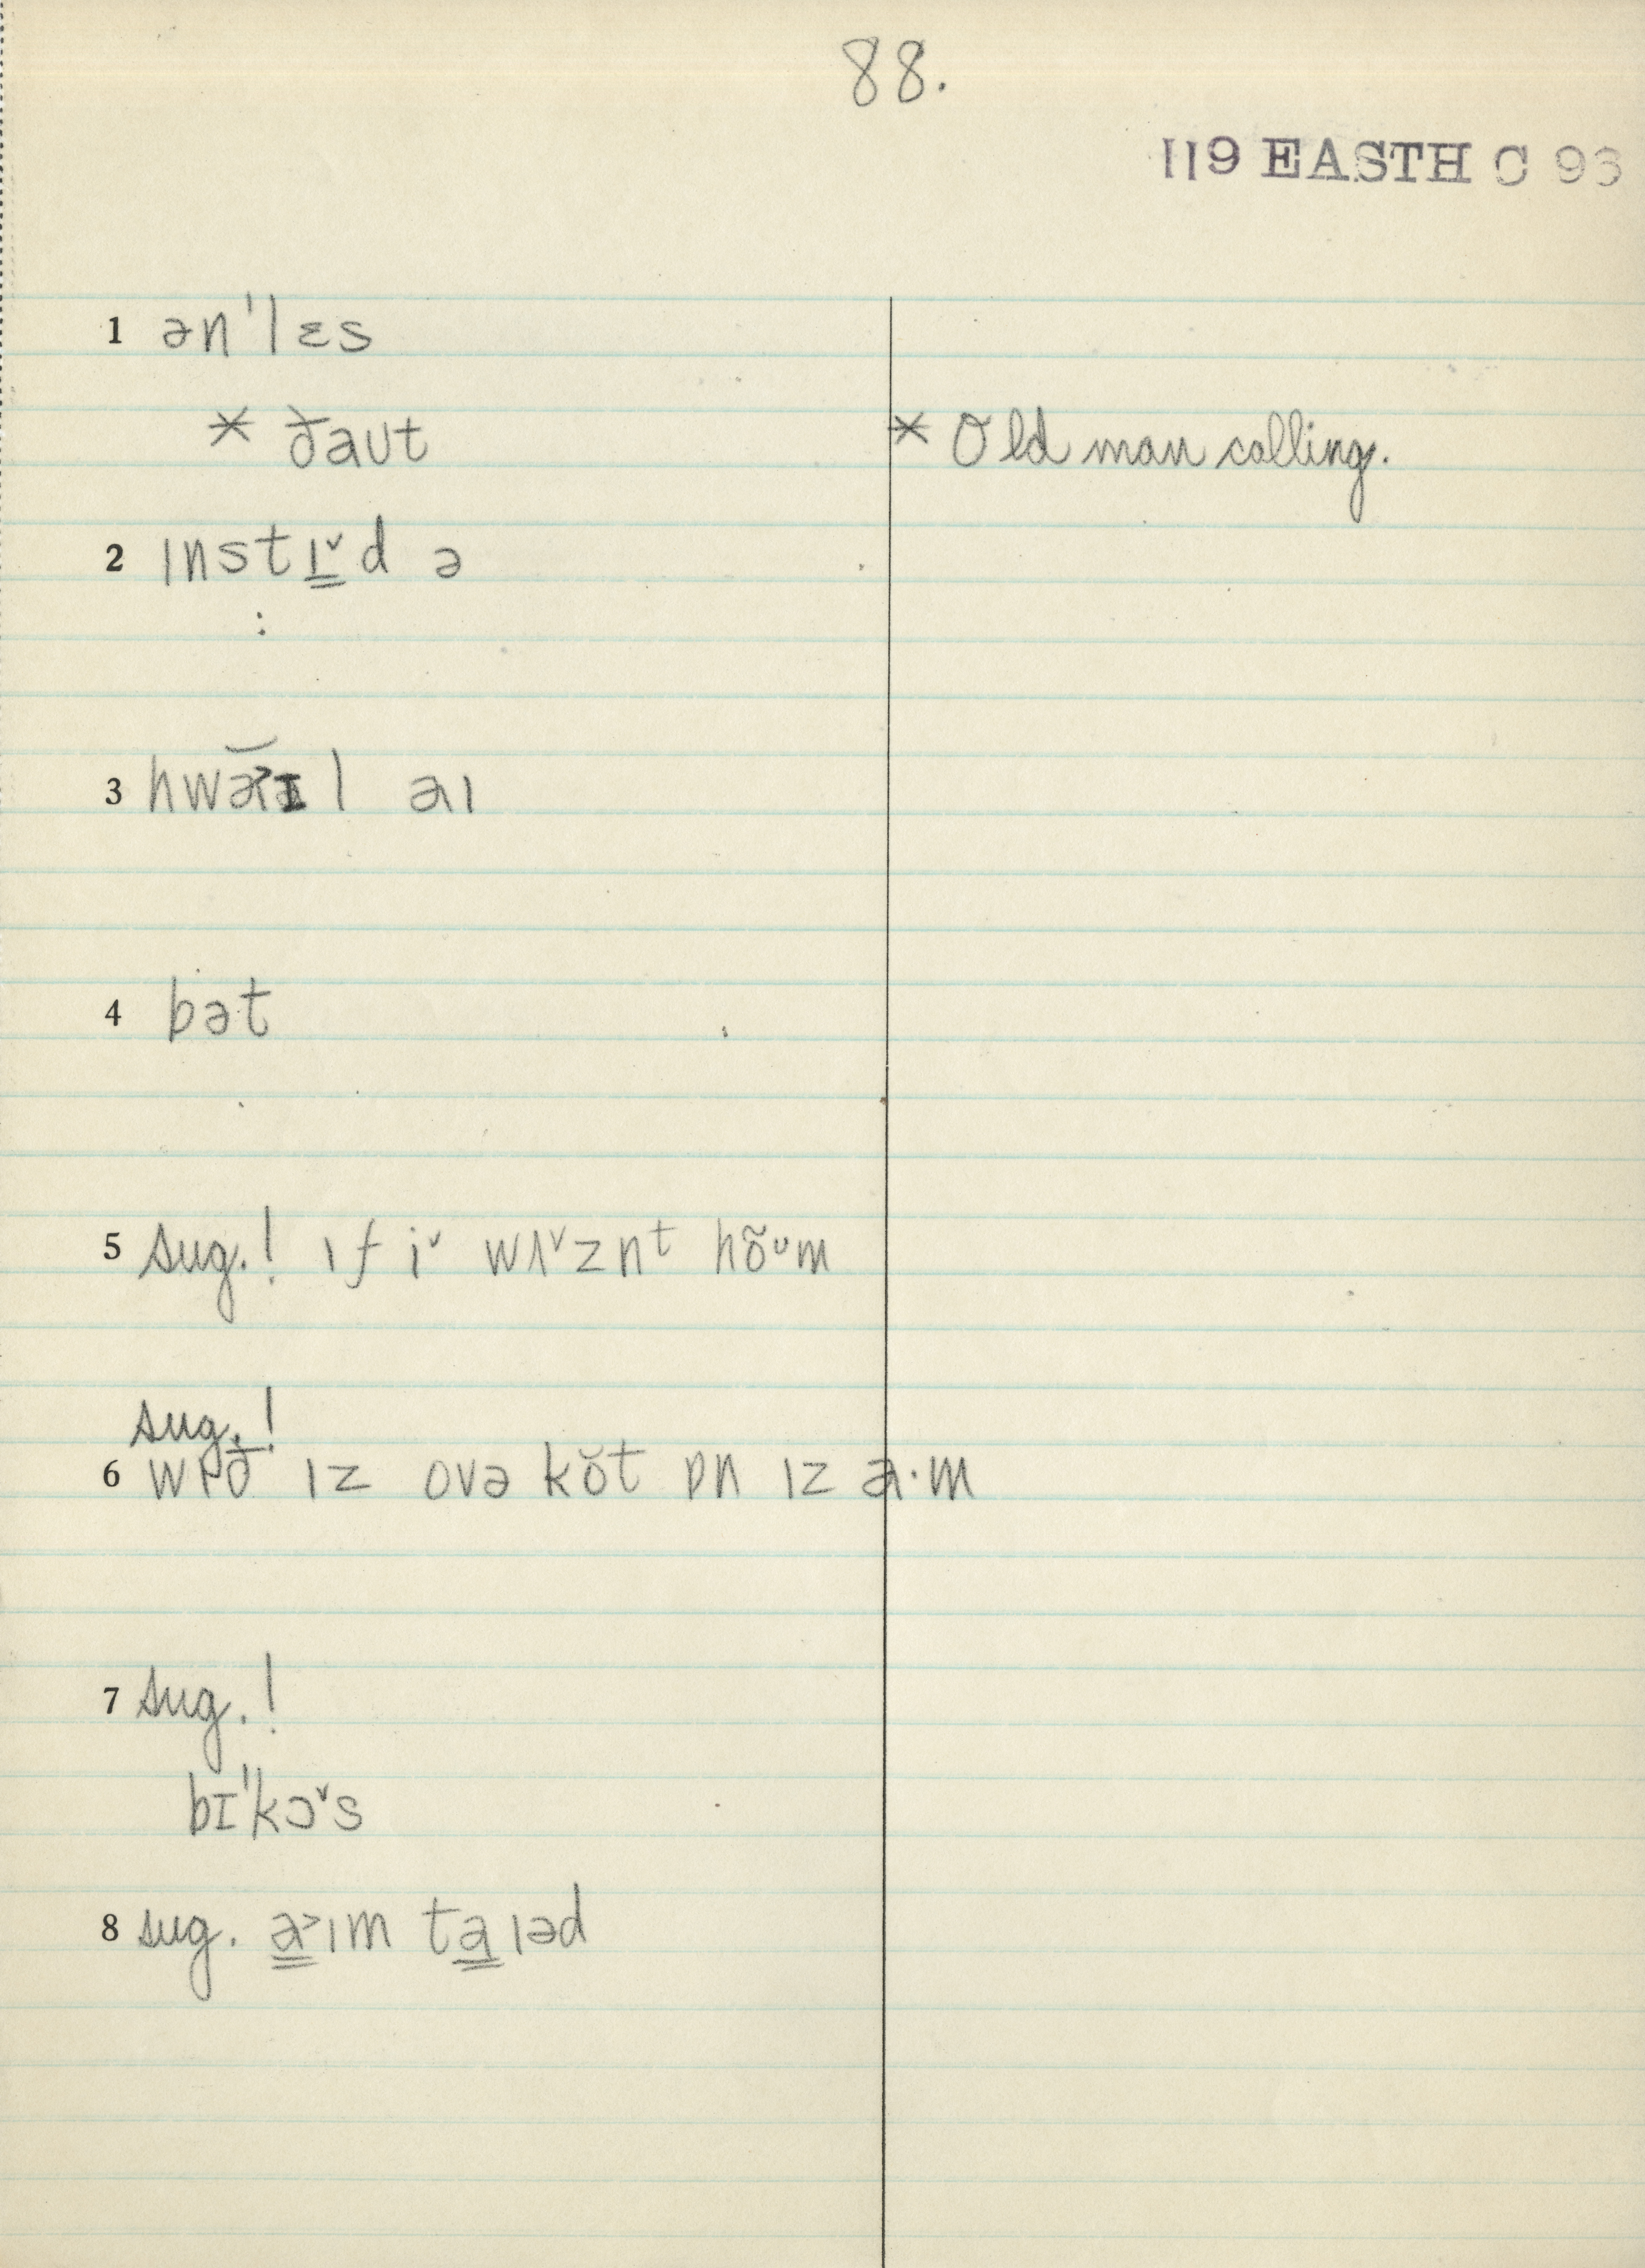 88.
119 EASTH C 93
1 ən'lɛs
* ðaʊt * Old man calling.
2 ɪnstɪ̳ˇd ə
:
l aɪ
4 bət
5 sug.! ɪf iˇ wɪˇznᵗ hõᶷm
sug.!
6 wɪð ɪz ovə kŏt ɒn ɪz a·m
7 sug.!
bɪ'kɔˇs
8 sug. a̳˃ɪm ta̳ɪəd